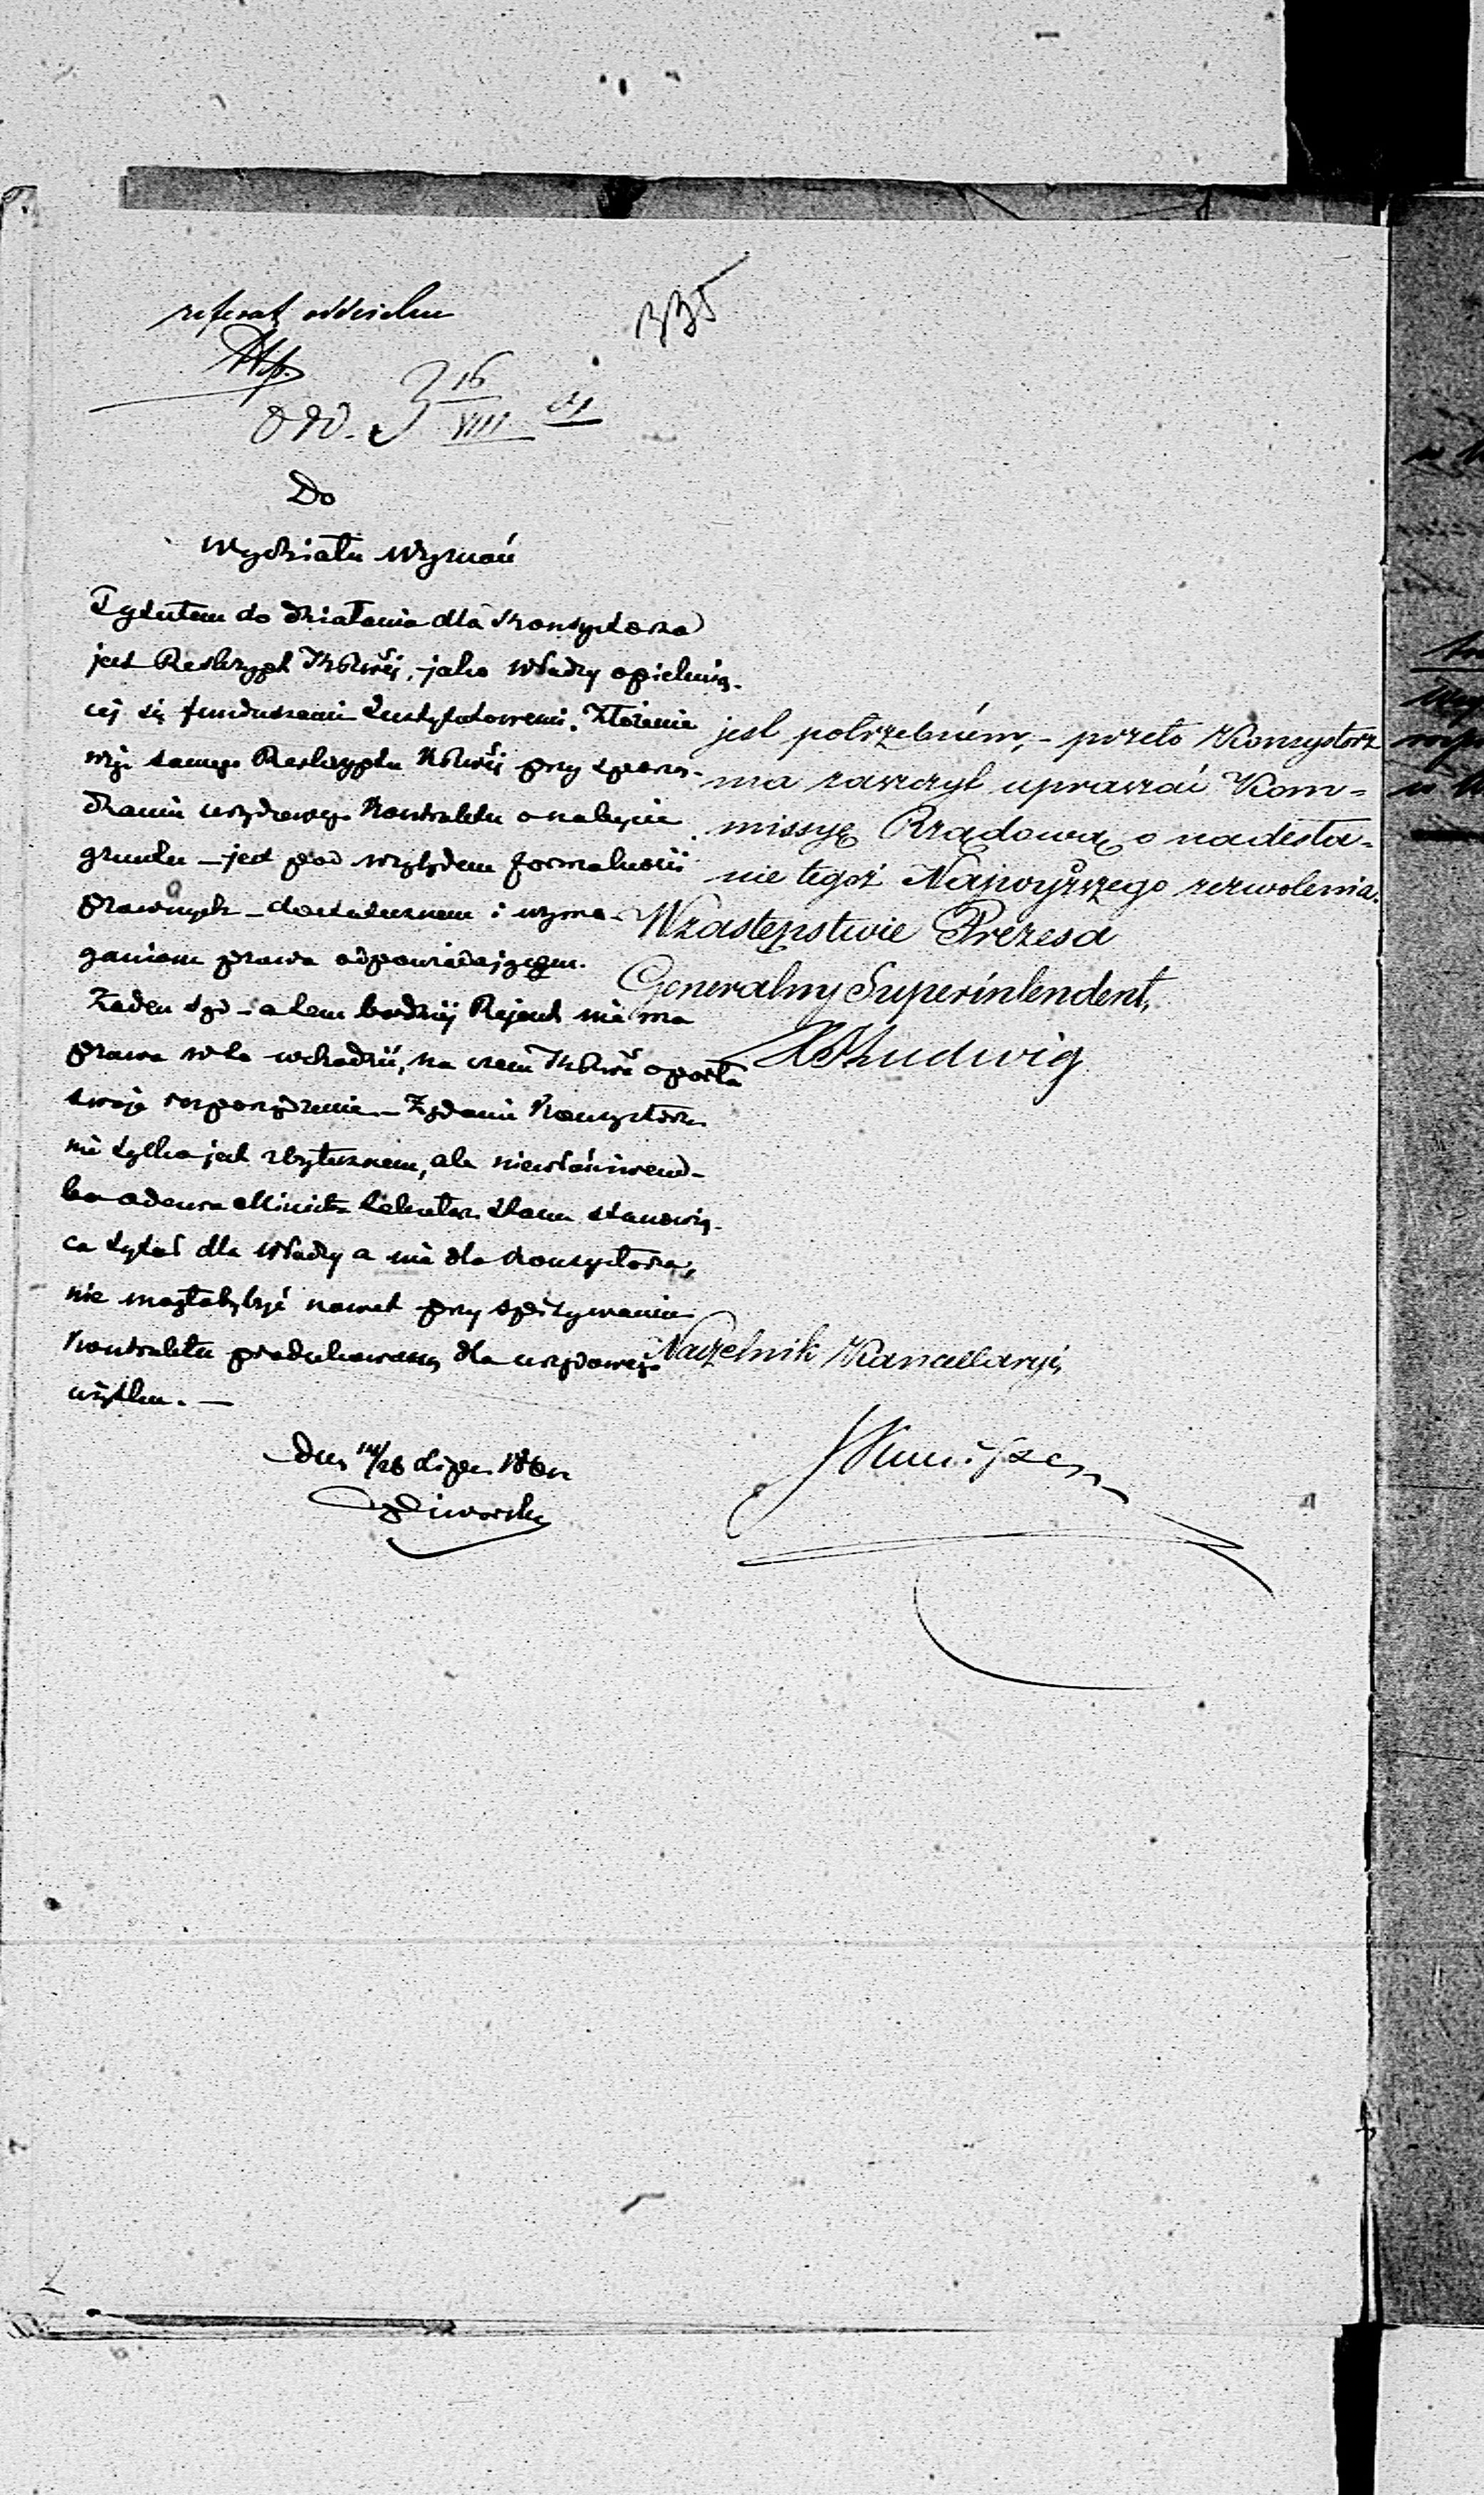 referat oddzieln
335
odd. 3 16/VIII 61
Do
Wydziału Wyznań
Tytułem do działania dla Konsystorza
jest Reskrypt KRwej, jako Władzy opiekują-
cej się funduszami Instytutowemi. Złożenie
więc samego Reskryptu KRwej przy sporzą-
dzaniu urzędowego Kontraktu o nabycie
gruntu – jest pod względem formalności
prawnych – dostatecznem i wyma-
ganiom prawa odpowiadającym.
Żaden Sąd – a tem bardziej Rejent nie ma
prawa w to wchodzić, na czem KRwa oparła
swoje rozporządzenie. – Żądanie Konsystorza
nie tylko jest zbytecznem, ale niewłaściwem –
bo odezwa Ministra Sekretarza Stanu stanowią-
ca tytuł dla Władzy a nie dla Konsystorza,
nie mogłaby być nawet przy spisywaniu
Kontraktu produkowaną dla urzędowego
użytku. –
dnia 14/26 Lipca 1861
jest potrzebném, – przeto Konsystorz
ma zaszczyt upraszać Kom-
missyę Rządową o nadesła-
nie tegoż Najwyższego zezwolenia.
W zastępstwie Prezesa
Generalny Superintendent,
Ludwig
Naczelnik Kancellaryi,